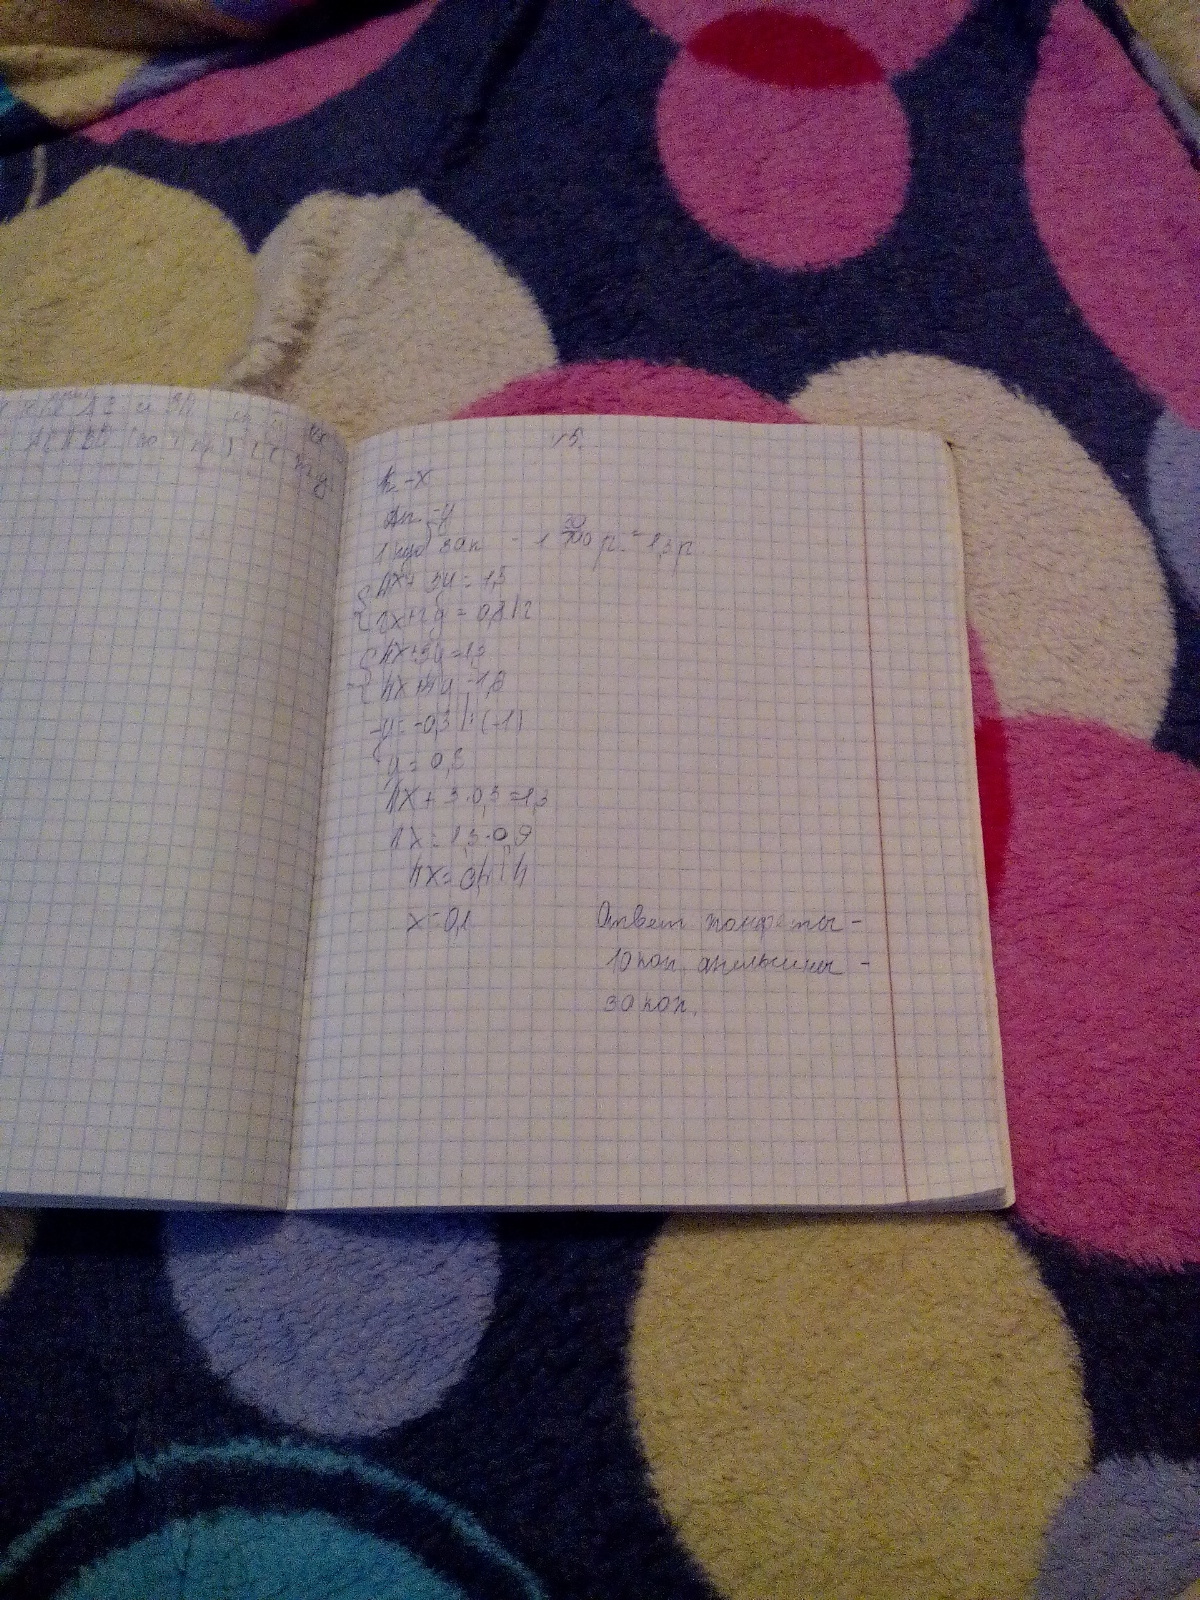 15.
К - x
Ап. - y
1 руб 30 к - 1 30/100 р. = 1,3 р.
4x + 3y = 1,3
2x + 2y = 0,8 |·2
4x + 3y = 1,3
4x + 4y = 1,6
-y = -0,3 |:(-1)
y = 0,3
4x + 3·0,3 = 1,3
4x = 1,3 - 0,9
4x = 0,4 |:4
x = 0,1
Ответ конфеты -
10 коп апельсины -
30 коп.